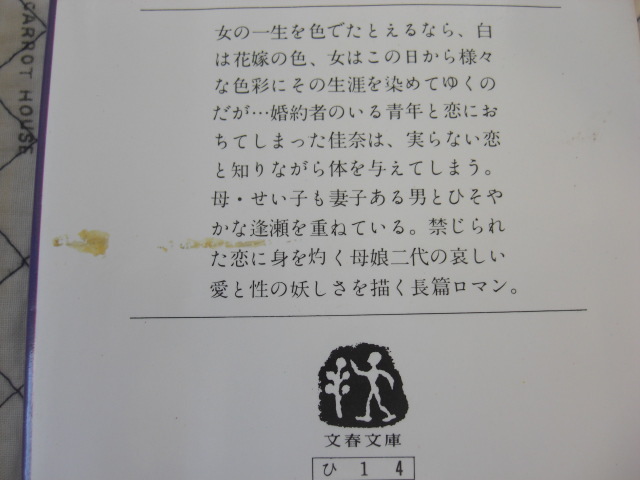 女の一生を色でたとえるなら、白
は花嫁の色、女はこの日から様々
な色彩にその生涯を染めてゆくの
だが…婚約者のいる青年と恋にお
ちてしまった佳奈は、実らない恋
と知りながら体を与えてしまう。
母・せい子も妻子ある男とひそや
かな逢瀬を重ねている。禁じられ
た恋に身を灼く母娘二代の哀しい
愛と性の妖しさを描く長篇ロマン。
文春文庫
ひ 1 4
CARROT HOUSE